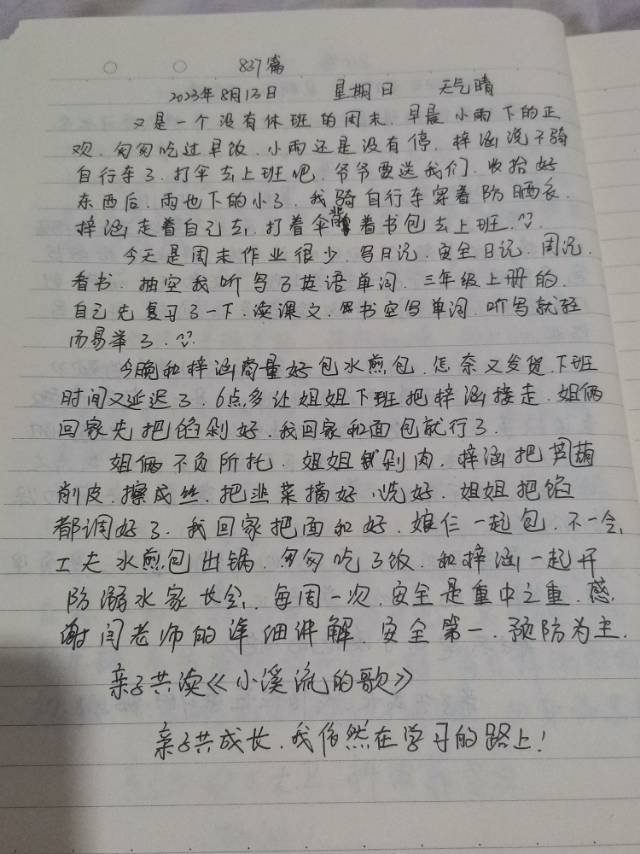 837篇
2023年8月13日 星期日 天气晴
又是一个没有休班的周末.早晨小雨下的正
欢.匆匆吃过早饭.小雨还是没有停.梓涵说不骑
自行车了.打伞去上班吧.爷爷要送我们.收拾好
东西后.雨也下的小了.我骑自行车穿着防晒衣.
梓涵走着自己去.打着伞背着书包去上班.
今天是周末作业很少.写日记.安全日记.周记.
看书.抽空我听写了英语单词.三年级上册的.
自己先复习了一下.读课文.书空写单词.听写就轻
而易举了.
今晚和梓涵商量好包水煎包.怎奈又发货.下班
时间又延迟了.6点多让姐姐下班把梓涵接走.姐俩
回家先把馅剁好.我回家和面包就行了.
姐俩不负所托.姐姐剁肉.梓涵把葫
削皮.擦成丝.把韭菜摘好.洗好.姐姐把馅
都调好了.我回家把面和好.娘仨一起包.不一会.
工夫水煎包出锅.匆匆吃了饭.和梓涵一起开
防溺水家长会.每周一次.安全是重中之重.感
谢闫老师的详细讲解.安全第一.预防为主.
亲子共读《小溪流的歌》
亲子共成长.我依然在学习的路上!